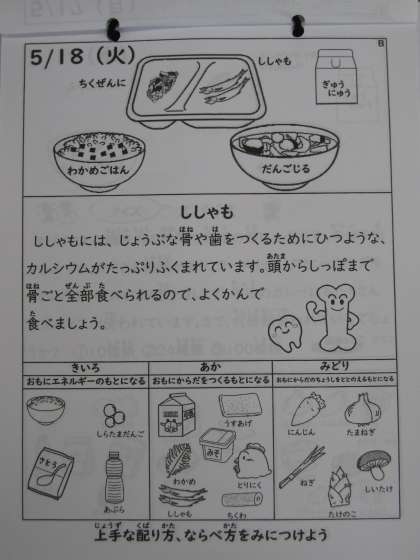 5/18（火）
B
ちくぜんに
ししゃも
ぎゅう
にゅう
わかめごはん
だんごじる
ししゃも
ししゃもには、じょうぶな骨や歯をつくるためにひつような、
カルシウムがたっぷりふくまれています。頭からしっぽまで
骨ごと全部食べられるので、よくかんで
食べましょう。
きいろ
おもにエネルギーのもとになる
しらたまだんご
さとう
あぶら
あか
おもにからだをつくるもとになる
うすあげ
みそ
わかめ
とりにく
ししゃも
ちくわ
みどり
おもにからだのちょうしをととのえるもとになる
にんじん
たまねぎ
ねぎ
しいたけ
たけのこ
上手な配り方、ならべ方をみにつけよう